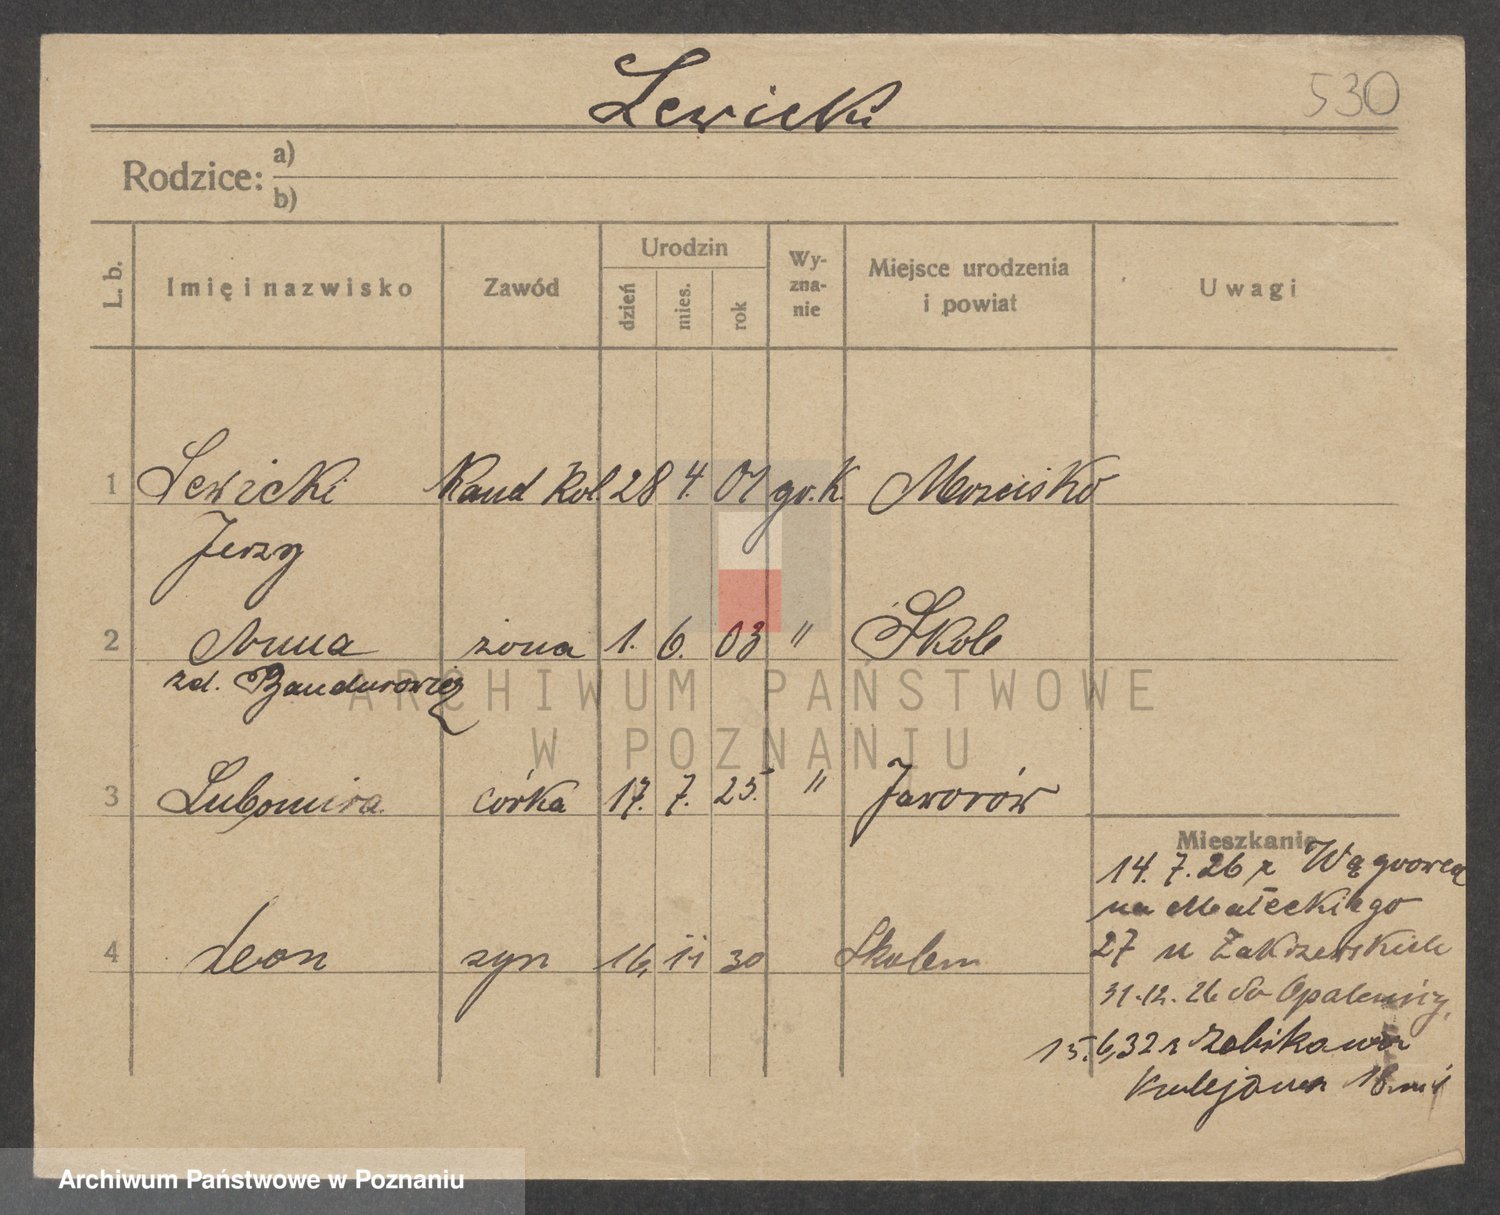 Lewicki
530
Rodzice: a)
b)
L. b.
Imię i nazwisko
Zawód
Urodzin
dzień
mies.
rok
Wy-
zna-
nie
Miejsce urodzenia
i powiat
Uwagi
1 Lewicki Kand kol. 28 4. 01 gr. K. Mościsko
Jerzy
2 Anna żona 1. 6. 03 " Skole
zd. Bandurowicz
3 Lubomira córka 17. 7. 25. " Jaworów
4 Leon syn 16, 11 30 Skolem
Mieszkanie
14. 7. 26 z Wągrowca
na Małeckiego
27 u Zakrzewskich
31.12.26 do Opalenicy,
15.6,32 z Żabikowa
Kolejowa 18
ARCHIWUM PAŃSTWOWE
W POZNANIU
Archiwum Państwowe w Poznaniu